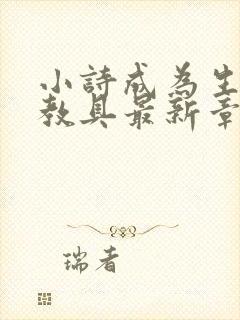 小詩成為生
教具最新章
瑞者